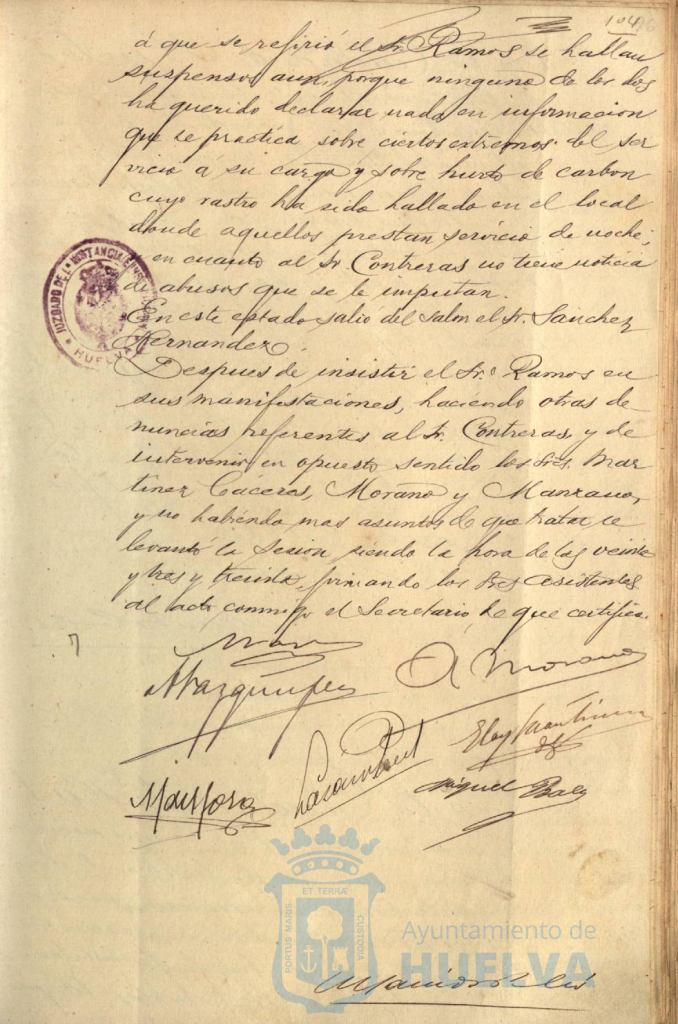 104
á que se refirió el Sr. Ramos se hallan
suspensos aun, porque ninguno de los dos
ha querido declarar nada en informacion
que se practica sobre ciertos extremos del ser
vicio á su cargo y sobre hurto de carbon
cuyo rastro ha sido hallado en el local
donde aquellos prestan servicio de noche;
y en cuanto al Sr. Contreras no tiene noticia
de abusos que se le imputan.
En este estado salio del salon el Sr. Sanchez
Hernandez.
Despues de insistir el Sr. Ramos en
sus manifestaciones, haciendo otras de
nuncias referentes al Sr. Contreras, y de
intervenir en opuesto sentido los Sres. Mar
tinez Cáceres, Morano y Manzano,
y no habiendo mas asuntos de que tratar se
levantó la sesion siendo la hora de las veinte
y tres y treinta, firmando los Sres asistentes
al acto conmigo el Secretario de que certifico.
JUZGADO DE 1ª INSTANCIA
HUELVA
A Morano
Eloy
Miguel
ET TERRÆ
PORTUS MARIS
CUSTODIA
Ayuntamiento de
HUELVA